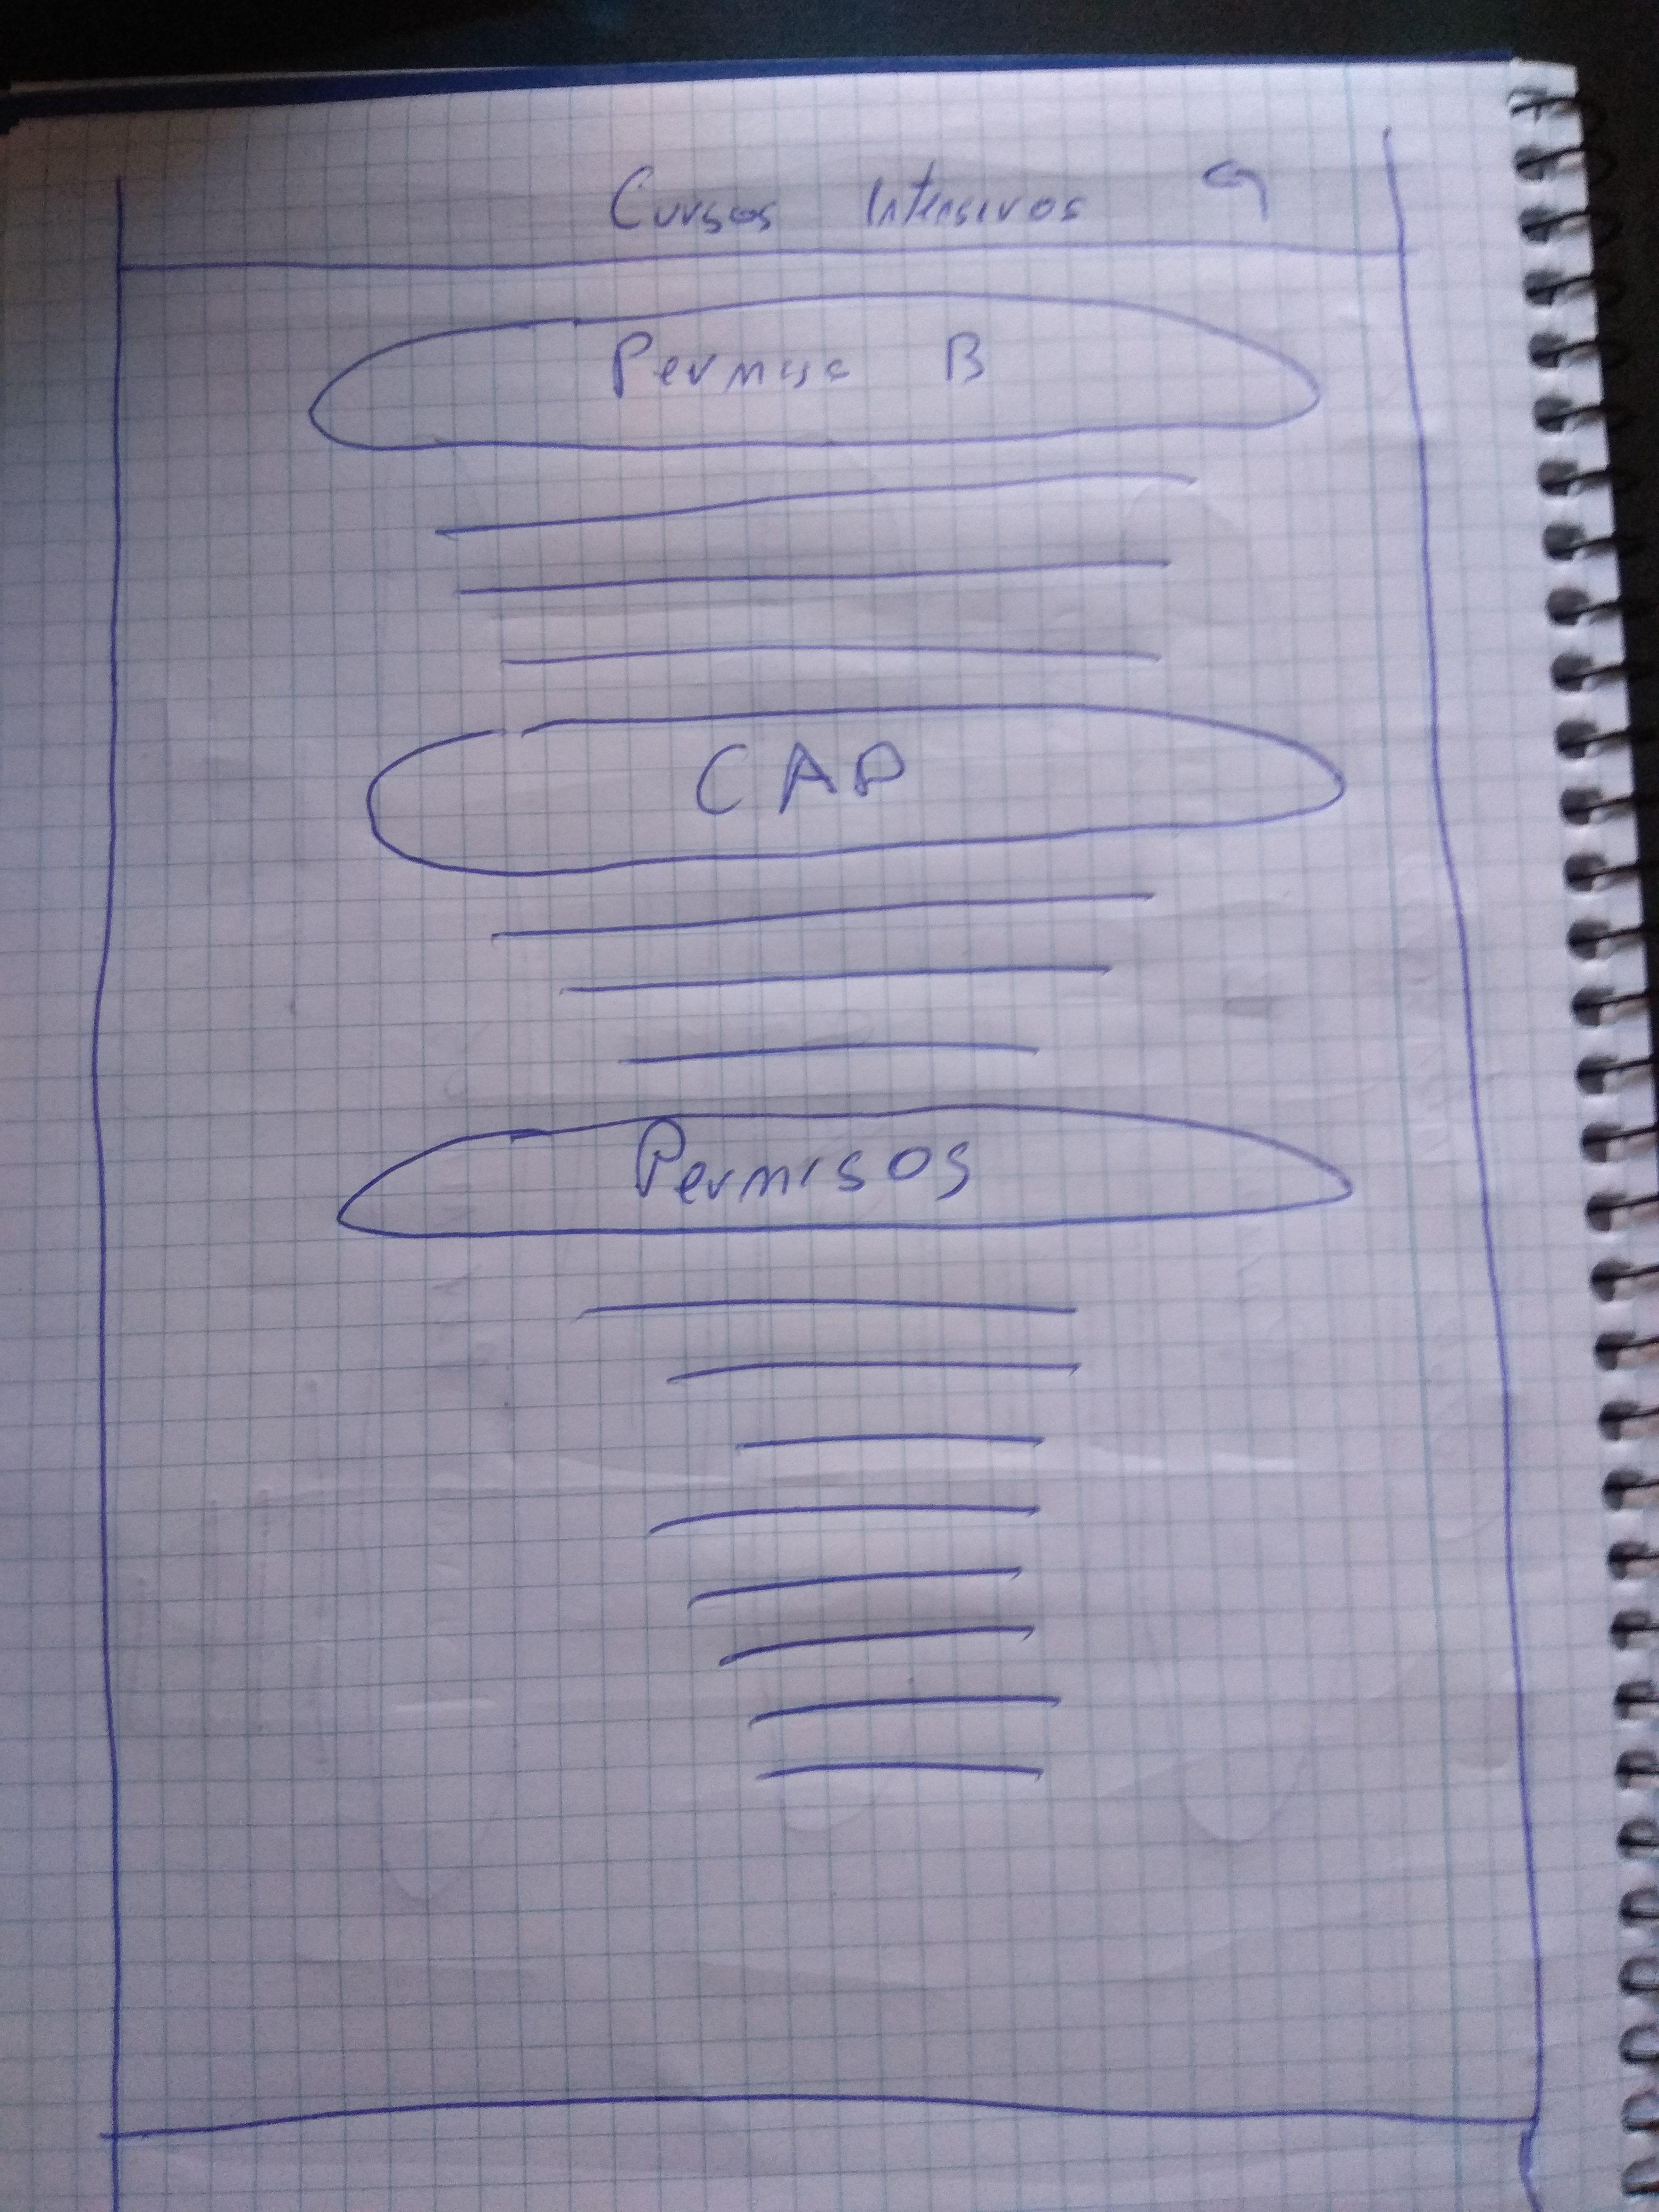 Cursos Intensivos
Permiso B
CAP
Permisos